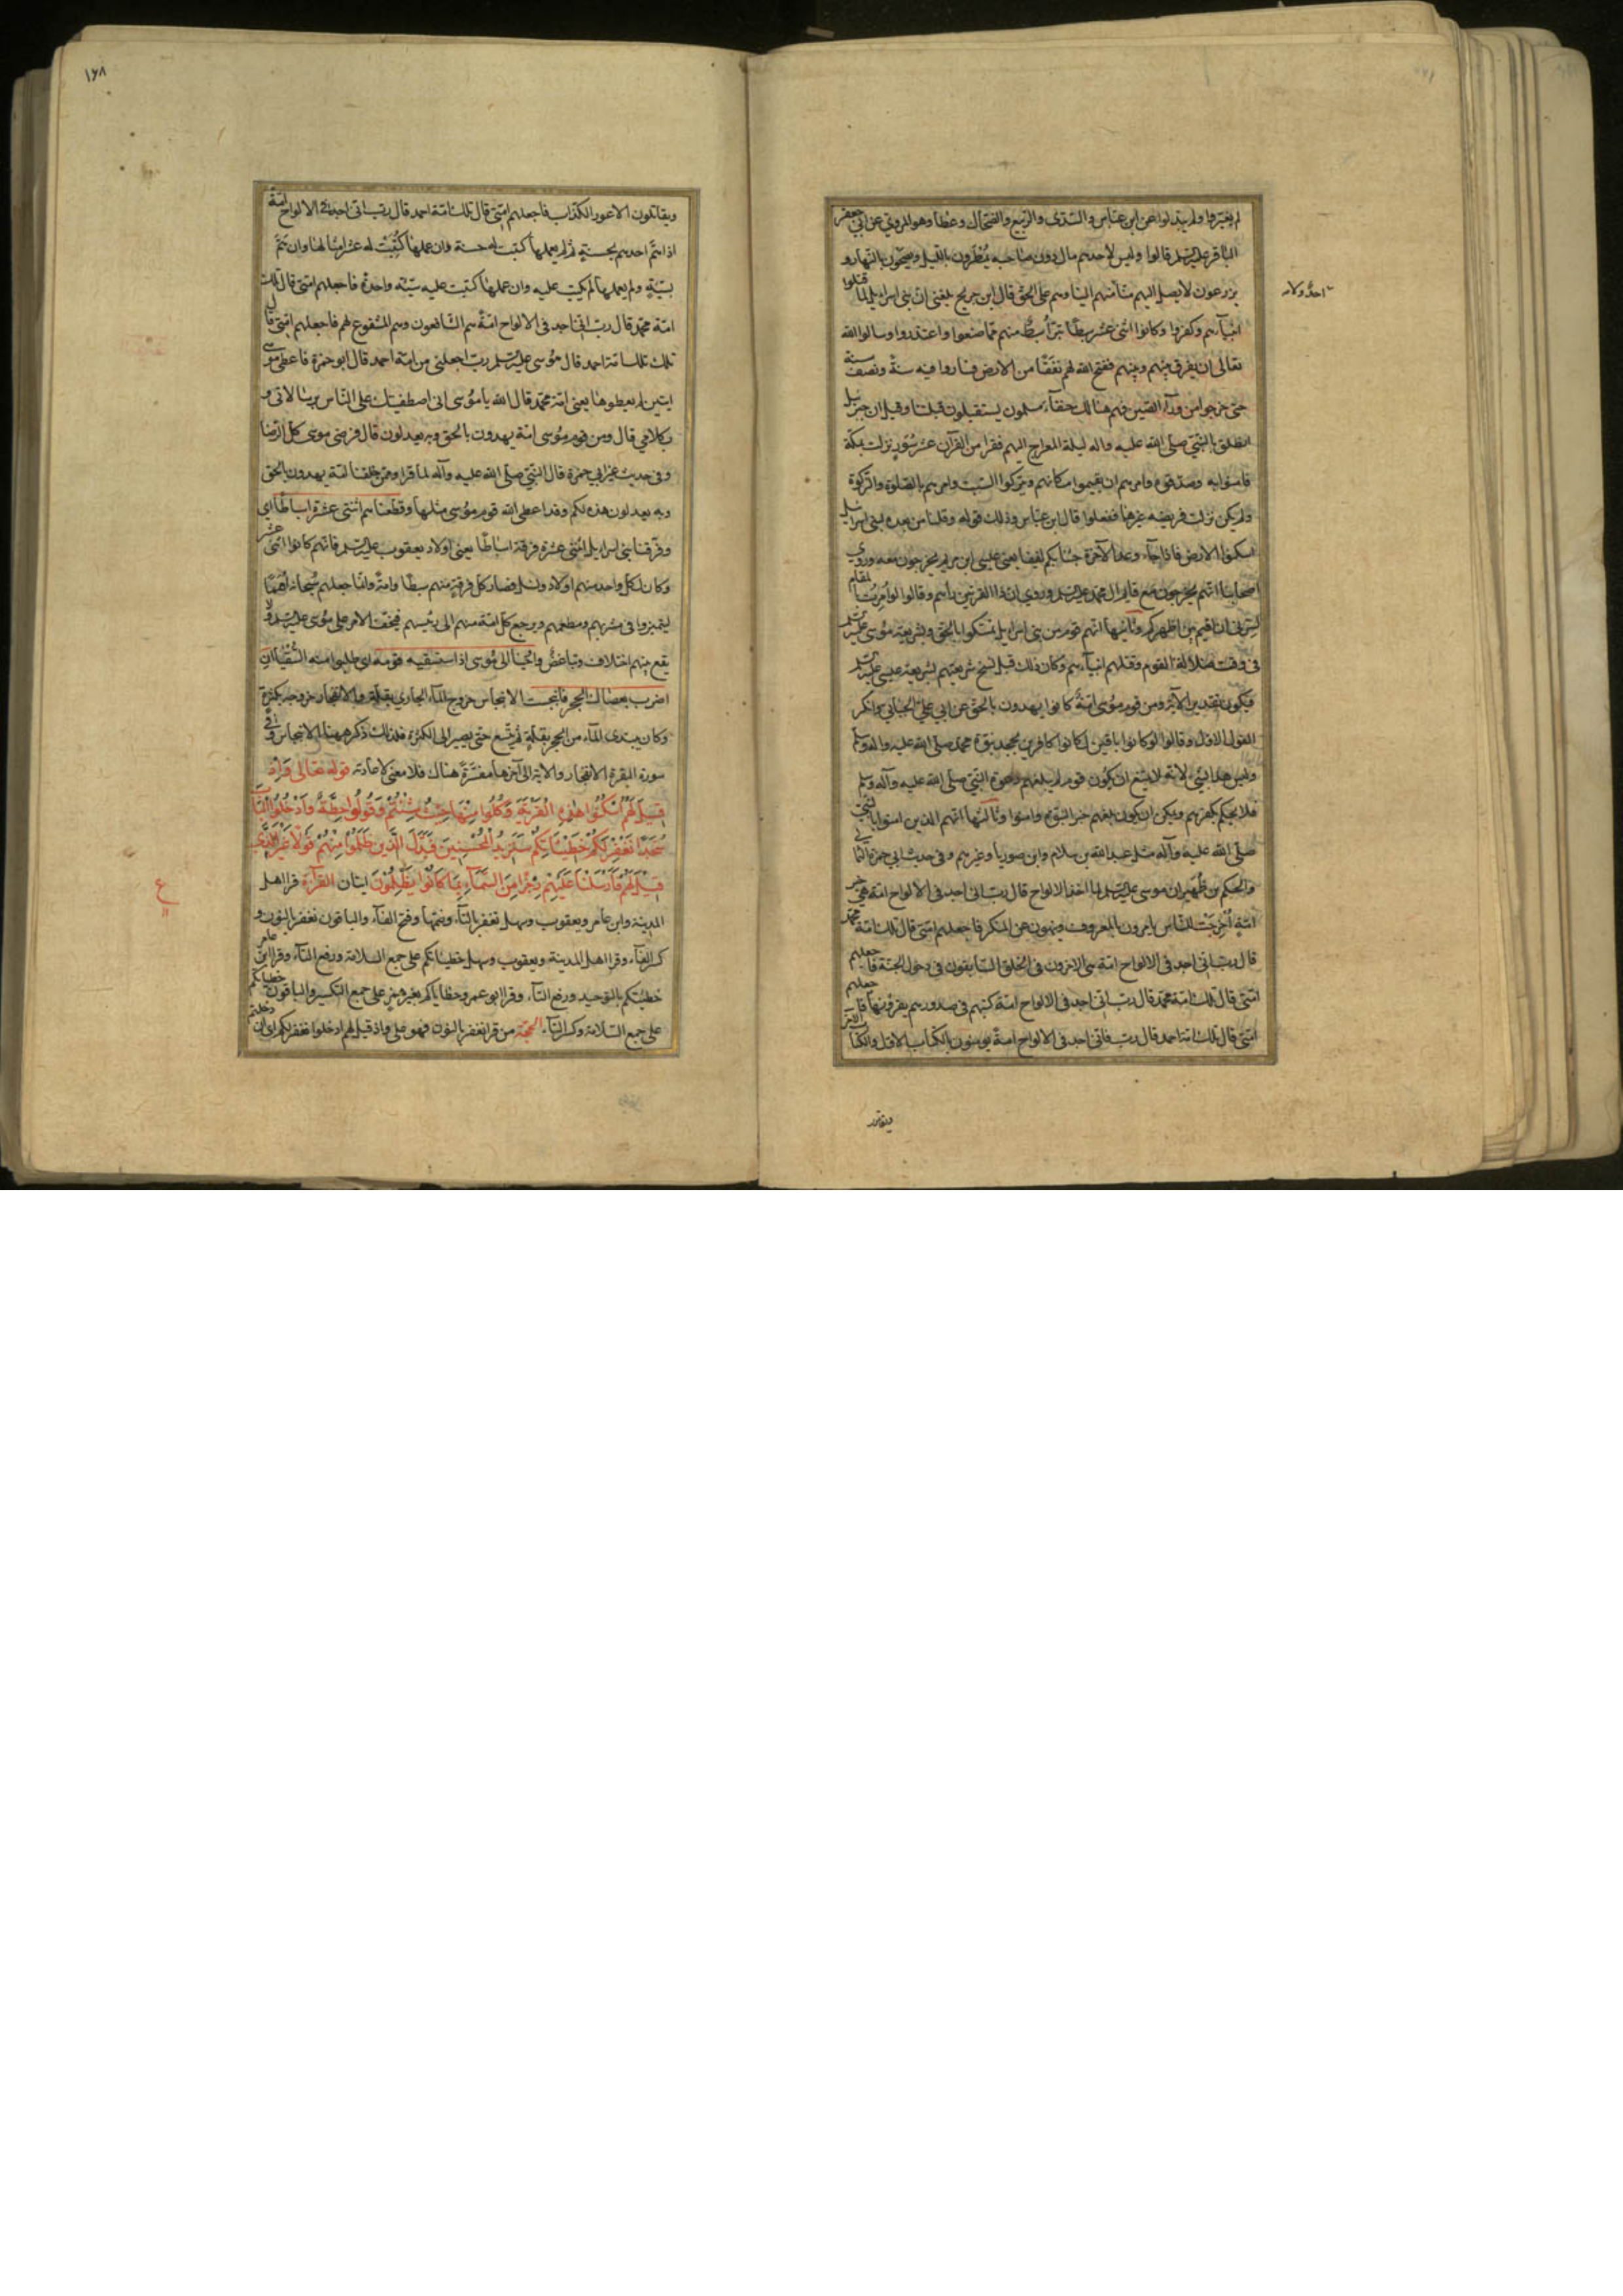 لم يغيروا ولم يبدلوا عن ابن عباس والسدى والربيع والضحاك وعطا وهو المروي عن ابي جعفر
الباقر عليه السلم قالوا وليس لاحدهم مال دون صاحبه يمطرون بالليل ويصحون بالنهار و
يزرعون لا يصل اليهم منا ولا منهم الينا وهم على الحق قال ابن جريج بلغنى ان بنى اسرائيل لما قتلوا
انبيآءهم وكفروا وكانوا اثنى عشر سبطا تبرأ سبط منهم مما صنعوا واعتذروا وسالوا الله
تعالى ان يفرق بينهم وبينهم ففتح الله لهم نفقا من الارض فساروا فيه سنة ونصف سنة
حتى خرجوا من ورآء الصين فهم هنالك حنفآء مسلمون يستقبلون قبلتنا وقيل ان جبرئيل
انطلق بالنبي صلى الله عليه واله ليلة المعراج اليهم فقرا من القرآن عشر سور نزلت بمكة
فامنوا به وصدقوه وامرهم ان يقيموا مكانهم ويتركوا السبت وامرهم بالصلوة والزكوة
ولم يكن نزلت فريضة غيرها ففعلوا قال ابن عباس وذلك قوله وقلنا من بعده لبنى اسرائيل
اسكنوا الارض فاذا جآء وعد الآخرة جئنا بكم لفيفا يعنى عيسى ابن مريم يخرجون معه وروى
اصحابنا انهم يخرجون مع قايم ال محمد عليه السلم وروي ان ذا القرنين رآهم وقالوا لو امرت بالمقام
لسرنى ان اقيم بين اظهركم وثانيها انهم قوم من بنى اسرايل تمسكوا بالحق وبشريعة موسى عليه السلم
فى وقت ضلالة القوم وقتلهم انبيآءهم وكان ذلك قبل نسخ شريعتهم بشريعة عيسى عليه السلم
فيكون تقدير الآية ومن قوم موسى امة كانوا يهدون بالحق عن ابي علي الجبائي وانكر
القول الاول وقالوا لو كانوا باقين لكانوا كافرين بجحد نبوة محمد صلى الله عليه واله وسلم
وليس هذا بشيء لانه لا يمتنع ان يكون قوم لم يبلغهم دعوة النبي صلى الله عليه وآله وسلم
فلا يحكم بكفرهم ويمكن ان يكون بلغهم خبر النبوة وامنوا وثالثها انهم الذين امنوا بالنبي
صلى الله عليه وآله مثل عبد الله بن سلام وابن صوريا وغيرهم وفى حديث ابي حمزة الثمالى
والحكم بن ظهير ان موسى عليه السلم لما اخذ الالواح قال رب انى اجد فى الالواح امة هي خير
امة اخرجت للناس يامرون بالمعروف وينهون عن المنكر فاجعلهم امتى قال تلك امة محمد
قال رب انى اجد فى الالواح امة هى الاخرون فى الخلق السابقون فى دخول الجنة فاجعلهم
امتى قال تلك امة محمد قال رب انى اجد فى الالواح امة كتبهم فى صدورهم يقرؤنها فاجعلهم
امتى قال تلك امة احمد قال رب فانى اجد فى الالواح امة يؤمنون بالكتاب الاول والكتاب الاخر
ويقاتلون
ويقاتلون الاعور الكذاب فاجعلهم امتى قال تلك امة احمد قال رب انى اجد فى الالواح امة
اذا هم احدهم بحسنة ثم لم يعملها كتبت له حسنة وان عملها كتبت له عشر امثالها وان هم
بسيئة ولم يعملها لم يكتب عليه وان عملها كتبت عليه سيئة واحدة فاجعلهم امتى قال تلك
امة محمد قال رب انى اجد فى الالواح امة هم الشافعون وهم المشفوع لهم فاجعلهم امتى قال
تلك امة احمد قال موسى عليه السلم رب اجعلنى من امة احمد قال ابو حمزة فاعطى موسى
ايتين لم يعطوها يعنى امة محمد قال الله يا موسى انى اصطفيتك على الناس برسالاتى و
بكلامي قال ومن قوم موسى امة يهدون بالحق وبه يعدلون قال فرضى موسى كل الرضا
وفى حديث غير ابي حمزة قال النبي صلى الله عليه وآله لما قرا وممن خلقنا امة يهدون بالحق
وبه يعدلون هذه لكم وقد اعطى الله قوم موسى مثلها وقطعناهم اثنتى عشرة اسباطا اي
وفرقنا بنى اسرايل اثنتى عشرة فرقة اسباطا يعنى اولاد يعقوب عليه السلم فانهم كانوا اثنى عشر
وكان لكل واحد منهم اولاد ونسل فصار كل فرقة منهم سبطا وامة وانما جعلهم سبحانه امما
ليتميزوا فى مشربهم ومطعمهم ويرجع كل امة منهم الى رئيسهم فيخف الامر على موسى عليه السلم ولا
يقع بينهم اختلاف وتباغض واوحينا الى موسى اذ استسقيه قومه اى طلبوا منه السقيا ان
اضرب بعصاك الحجر فانبجست الانبجاس خروج المآء الجاري بقلة والانفجار خروجه بكثرة
وكان يبتدى المآء من الحجر بقلة ثم يتسع حتى يصير الى الكثرة فلذلك ذكر ههنا الانبجاس وفى
سورة البقرة الانفجار والاية الى آخرها مفسرة هناك فلا معنى لاعادته قوله تعالى وَاِذْ
قِيلَ لَهُمُ اسْكُنُوا هٰذِهِ الْقَرْيَةَ وَكُلُوا مِنْهَا حَيْثُ شِئْتُمْ وَقُولُوا حِطَّةٌ وَادْخُلُوا الْبَابَ
سُجَّدًا نَغْفِرْ لَكُمْ خَطِيئَاتِكُمْ سَنَزِيدُ الْمُحْسِنِينَ فَبَدَّلَ الَّذِينَ ظَلَمُوا مِنْهُمْ قَوْلًا غَيْرَ الَّذِي
قِيلَ لَهُمْ فَاَرْسَلْنَا عَلَيْهِمْ رِجْزًا مِنَ السَّمَآءِ بِمَا كَانُوا يَظْلِمُونَ ايتان القرآءة قرا اهل
المدينة وابن عامر ويعقوب وسهل تغفر بالتآء وضمها وفتح الفآء والباقون نغفر بالنون و
كسر الفآء وقرا اهل المدينة ويعقوب وسهل خطيئاتكم على جمع السلامة ورفع التآء وقرا ابن عامر
خطيئتكم بالتوحيد ورفع التآء وقرا ابو عمرو خطاياكم بغير همز على جمع التكسير والباقون خطيئاتكم
على جمع السلامة وكسر التآء الحجة من قرا نغفر بالنون فهو على واذ قيل لهم ادخلوا نغفر لكم اى ان دخلتم
ع
١٦٨